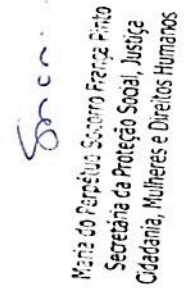 Maria do Perpétuo Socorro França Pinto
Secretária da Proteção Social, Justiça
Cidadania, Mulheres e Direitos Humanos